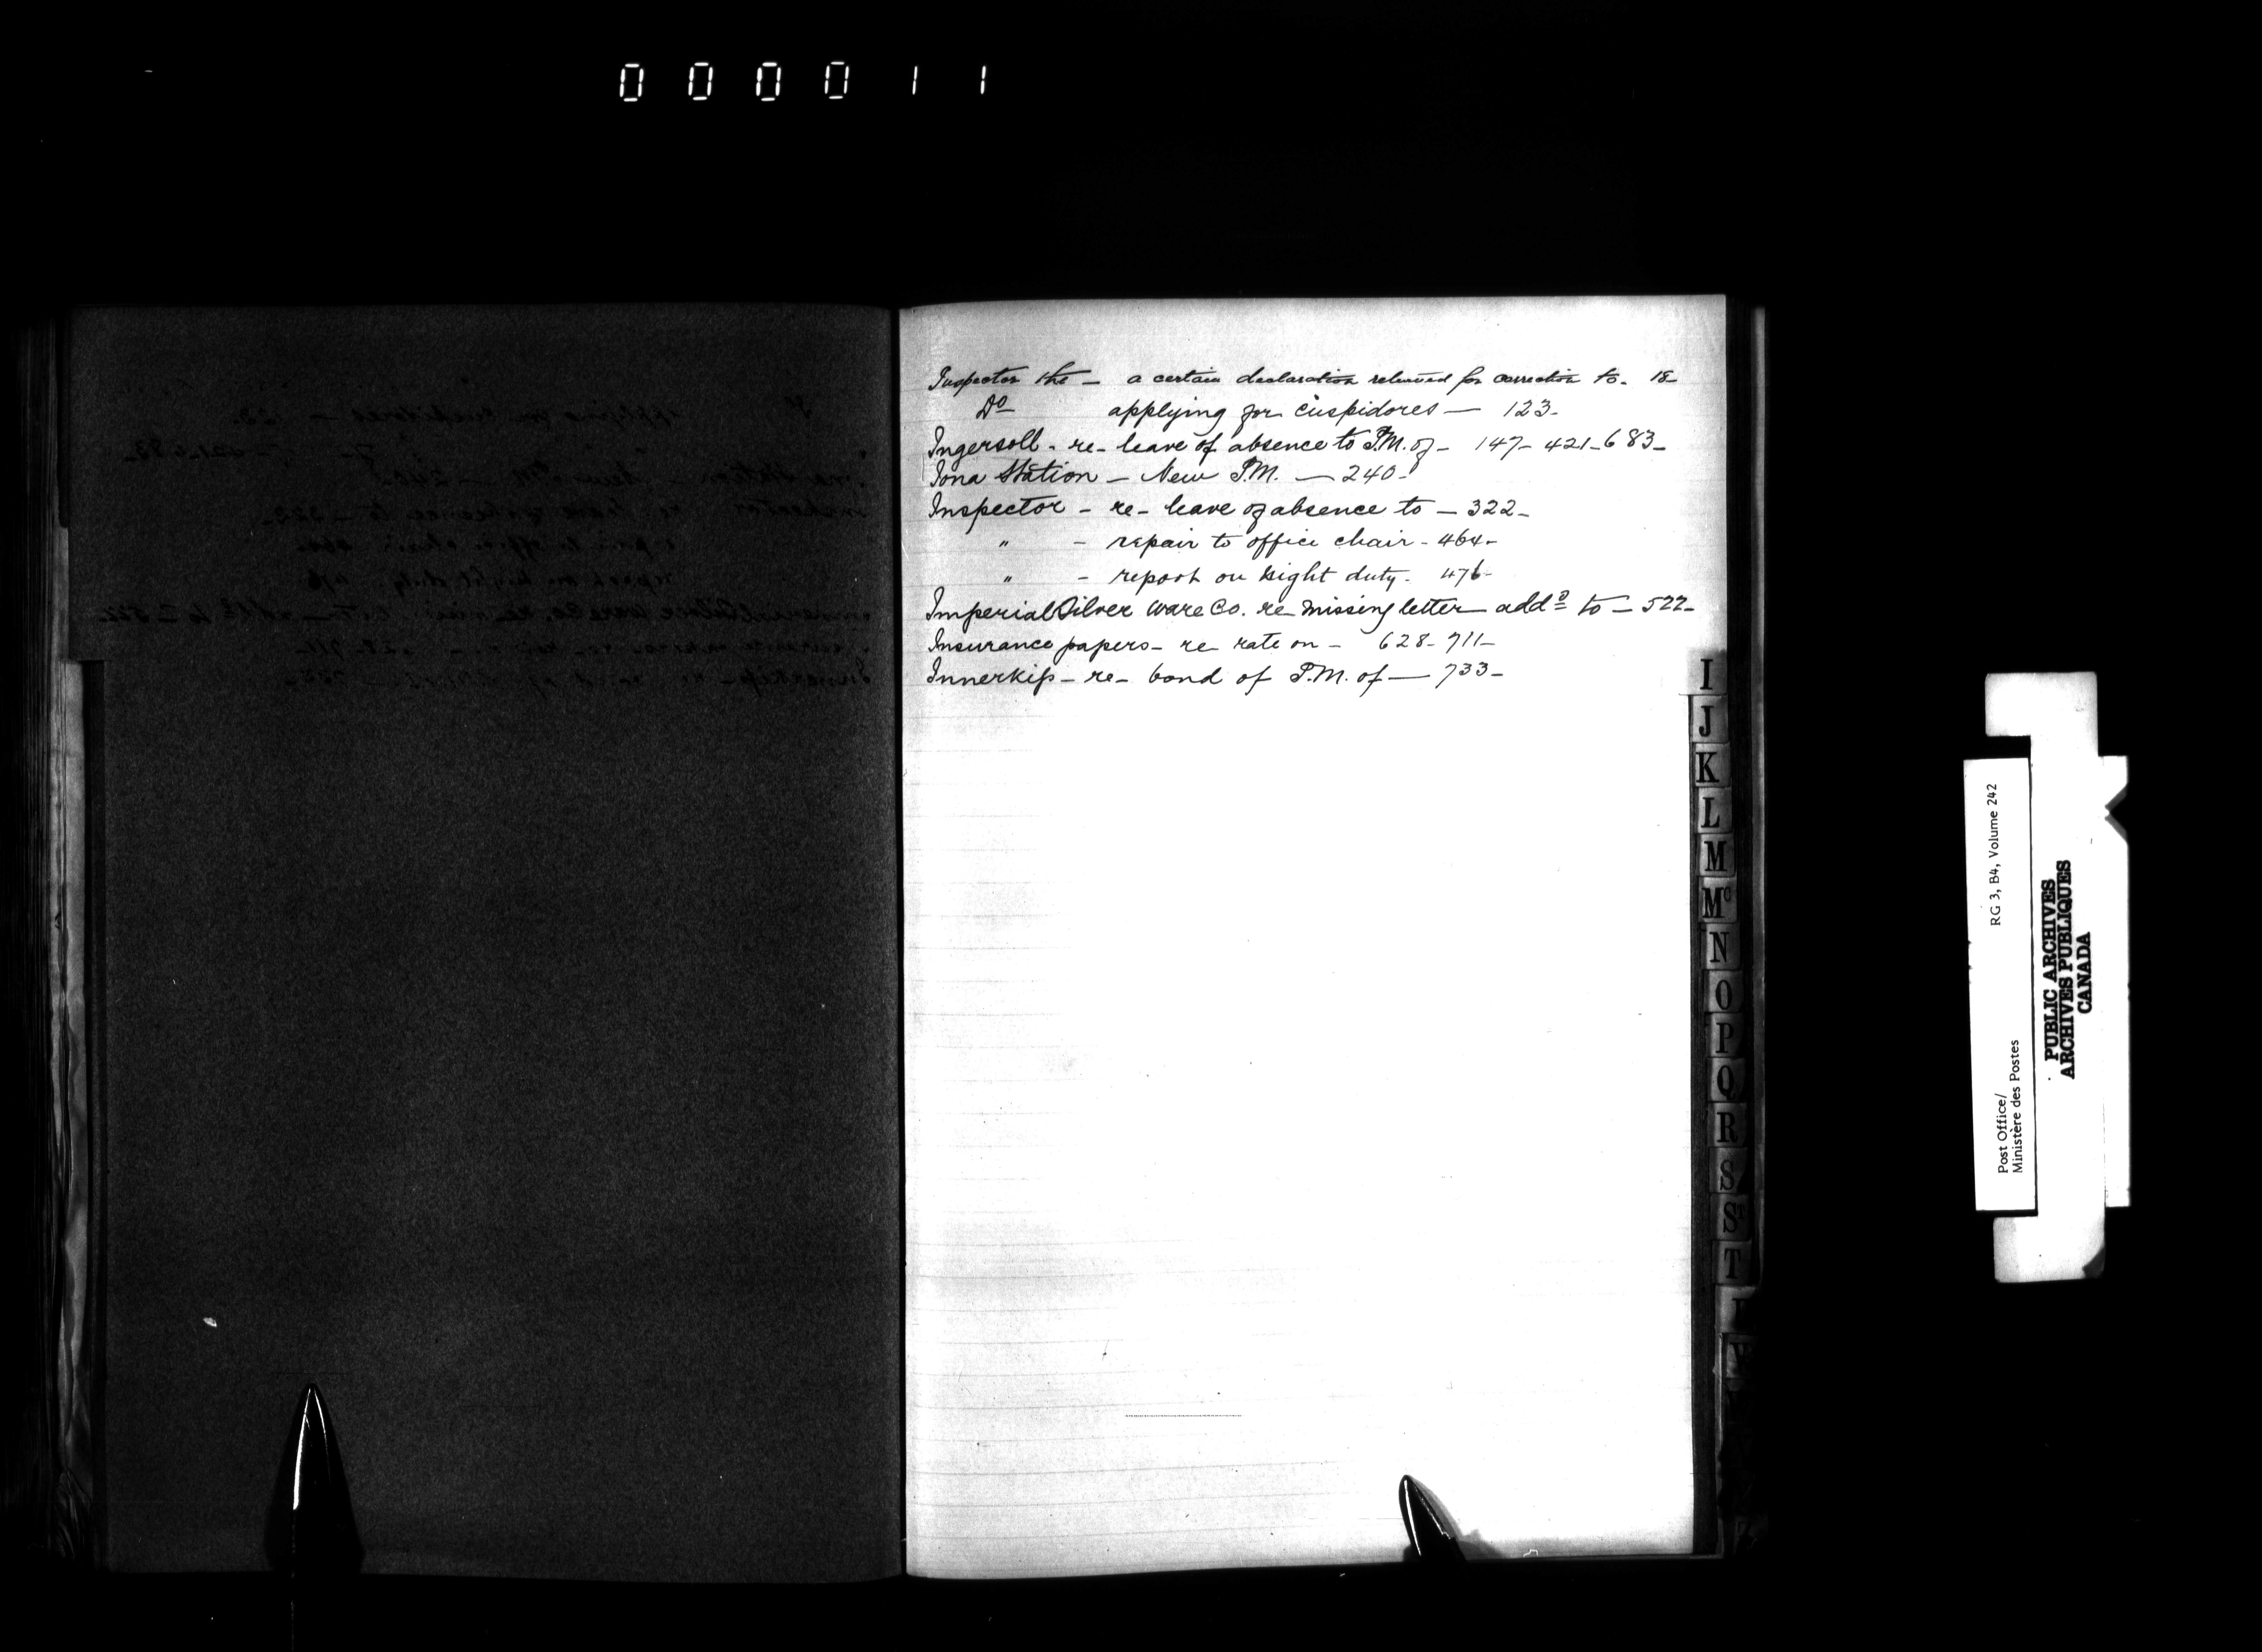 000011
Inspector the – a certain declaration returned for correction to. 18–
Do applying for cuspidores — 123–
Ingersoll – re – leave of absence to P.M. of – 147 – 421 – 683 –
Iona Station – New P.M. — 240 –
Inspector – re – leave of absence to – 322 –
" – repair to office chair – 464 –
" – report on night duty – 476 –
Imperial Silver Ware Co. re missing letter add d to – 522 –
Insurance papers – re rate on – 628 – 711 –
Innerkip – re – bond of P.M. of — 733 –
I
J
K
L
M
Mc
N
O
P
Q
R
S
ST
T
Post Office/
Ministère des Postes
RG 3, B4, Volume 242
PUBLIC ARCHIVES
ARCHIVES PUBLIQUES
CANADA